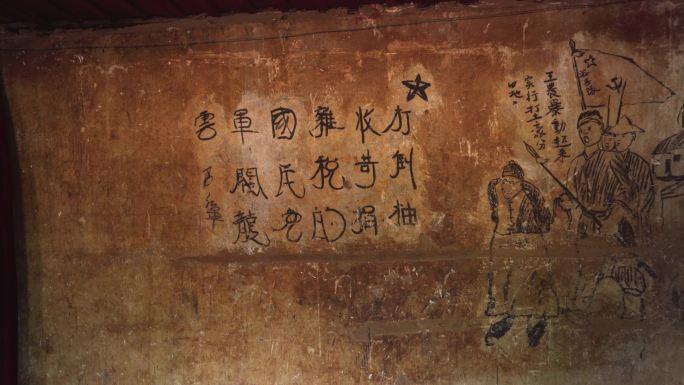 打倒抽
收苛捐
雜税的
國民党
軍閥龍
雲
工農暴動起來
实行打土豪分
田地。